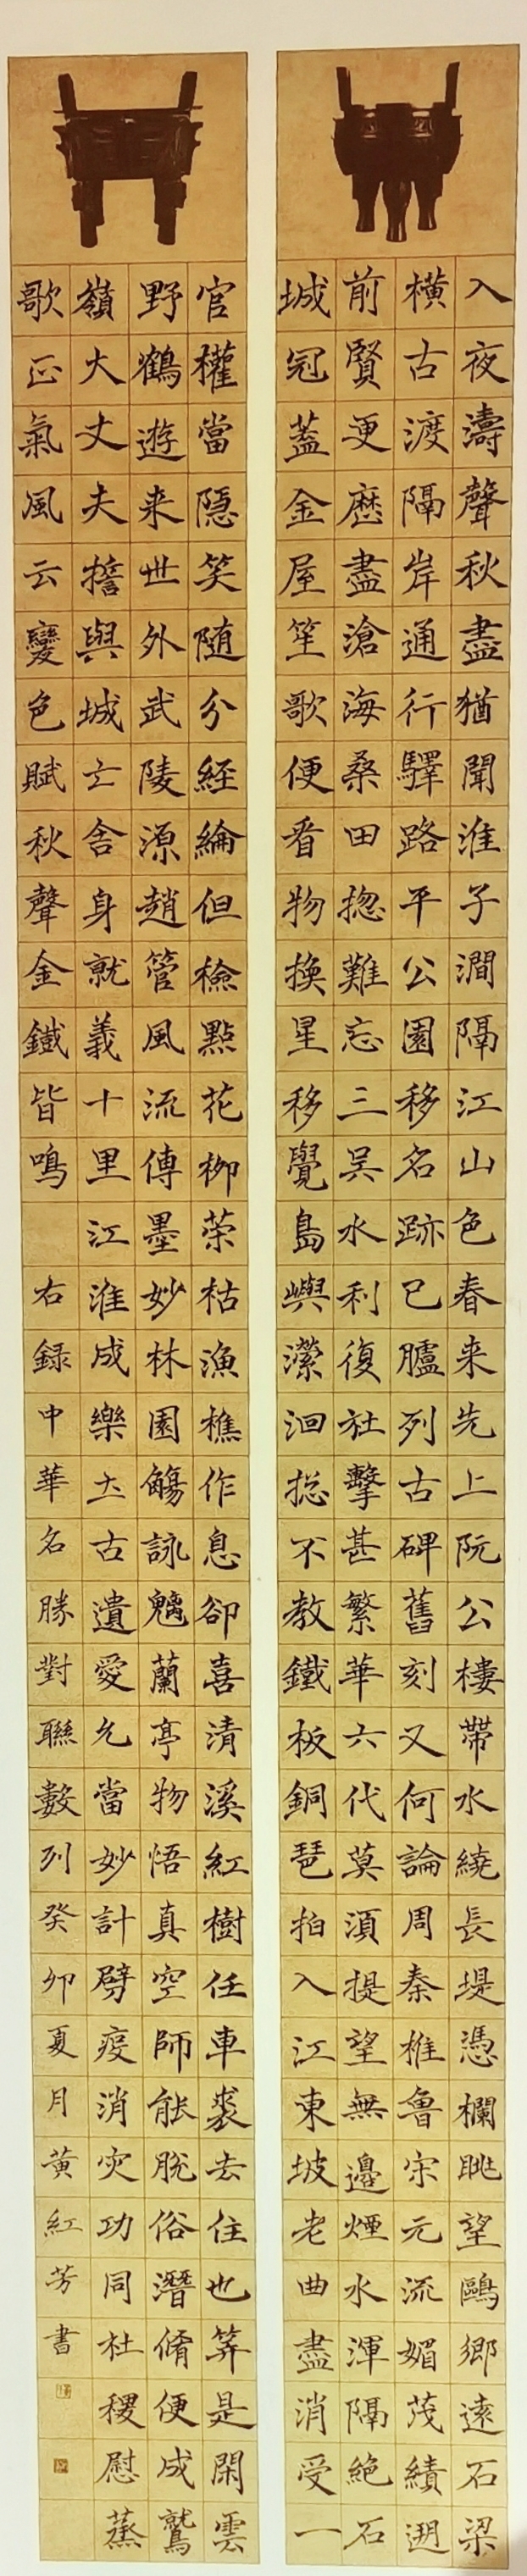 入夜濤聲秋盡猶聞淮子澗隔江山色春来先上阮公樓帶水繞長堤憑欄眺望鷗鄉遠石梁
橫古渡隔岸通行驛路平公園移名跡已臚列古碑舊刻又何論周秦惟魯宋元流媚茂績遡
前賢更歷盡滄海桑田揔難忘三吴水利復社擊甚繁華六代莫湏提望無邊煙水渾隔絶石
城冠蓋金屋笙歌便看物換星移覺島嶼瀠洄揔不教鐵板銅琶拍入江東坡老曲盡消受一
官權當隱笑随分経綸但檢點花柳荣枯漁樵作息卻喜清溪紅樹任車裘去住也筭是閑雲
野鶴遊来世外武陵源趙管風流傳墨妙林園觴詠魎蘭亭物悟真空師能脱俗潛脩便成鷲
嶺大丈夫擔與城亡舍身就義十里江淮成樂土古遺愛允當妙計劈疫消灾功同杜稷慰蒸
歌正氣風云變色賦秋聲金鐵皆鳴
右録中華名勝對聯數列癸卯夏月黄紅芳書